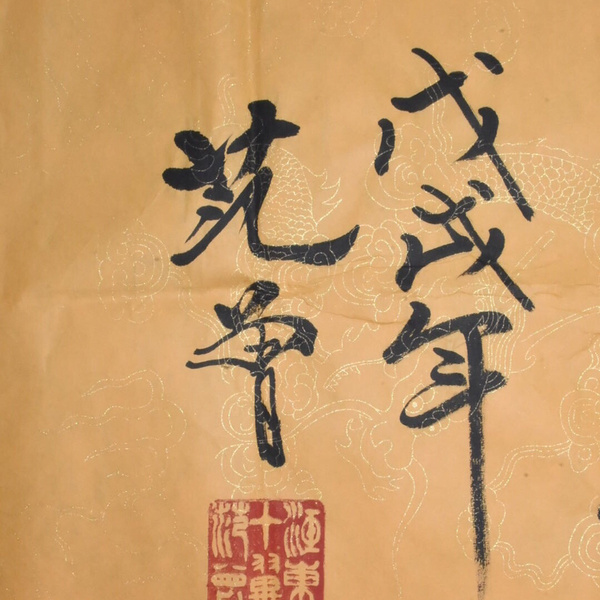 戊戌年
范曾
江東
十翼
范